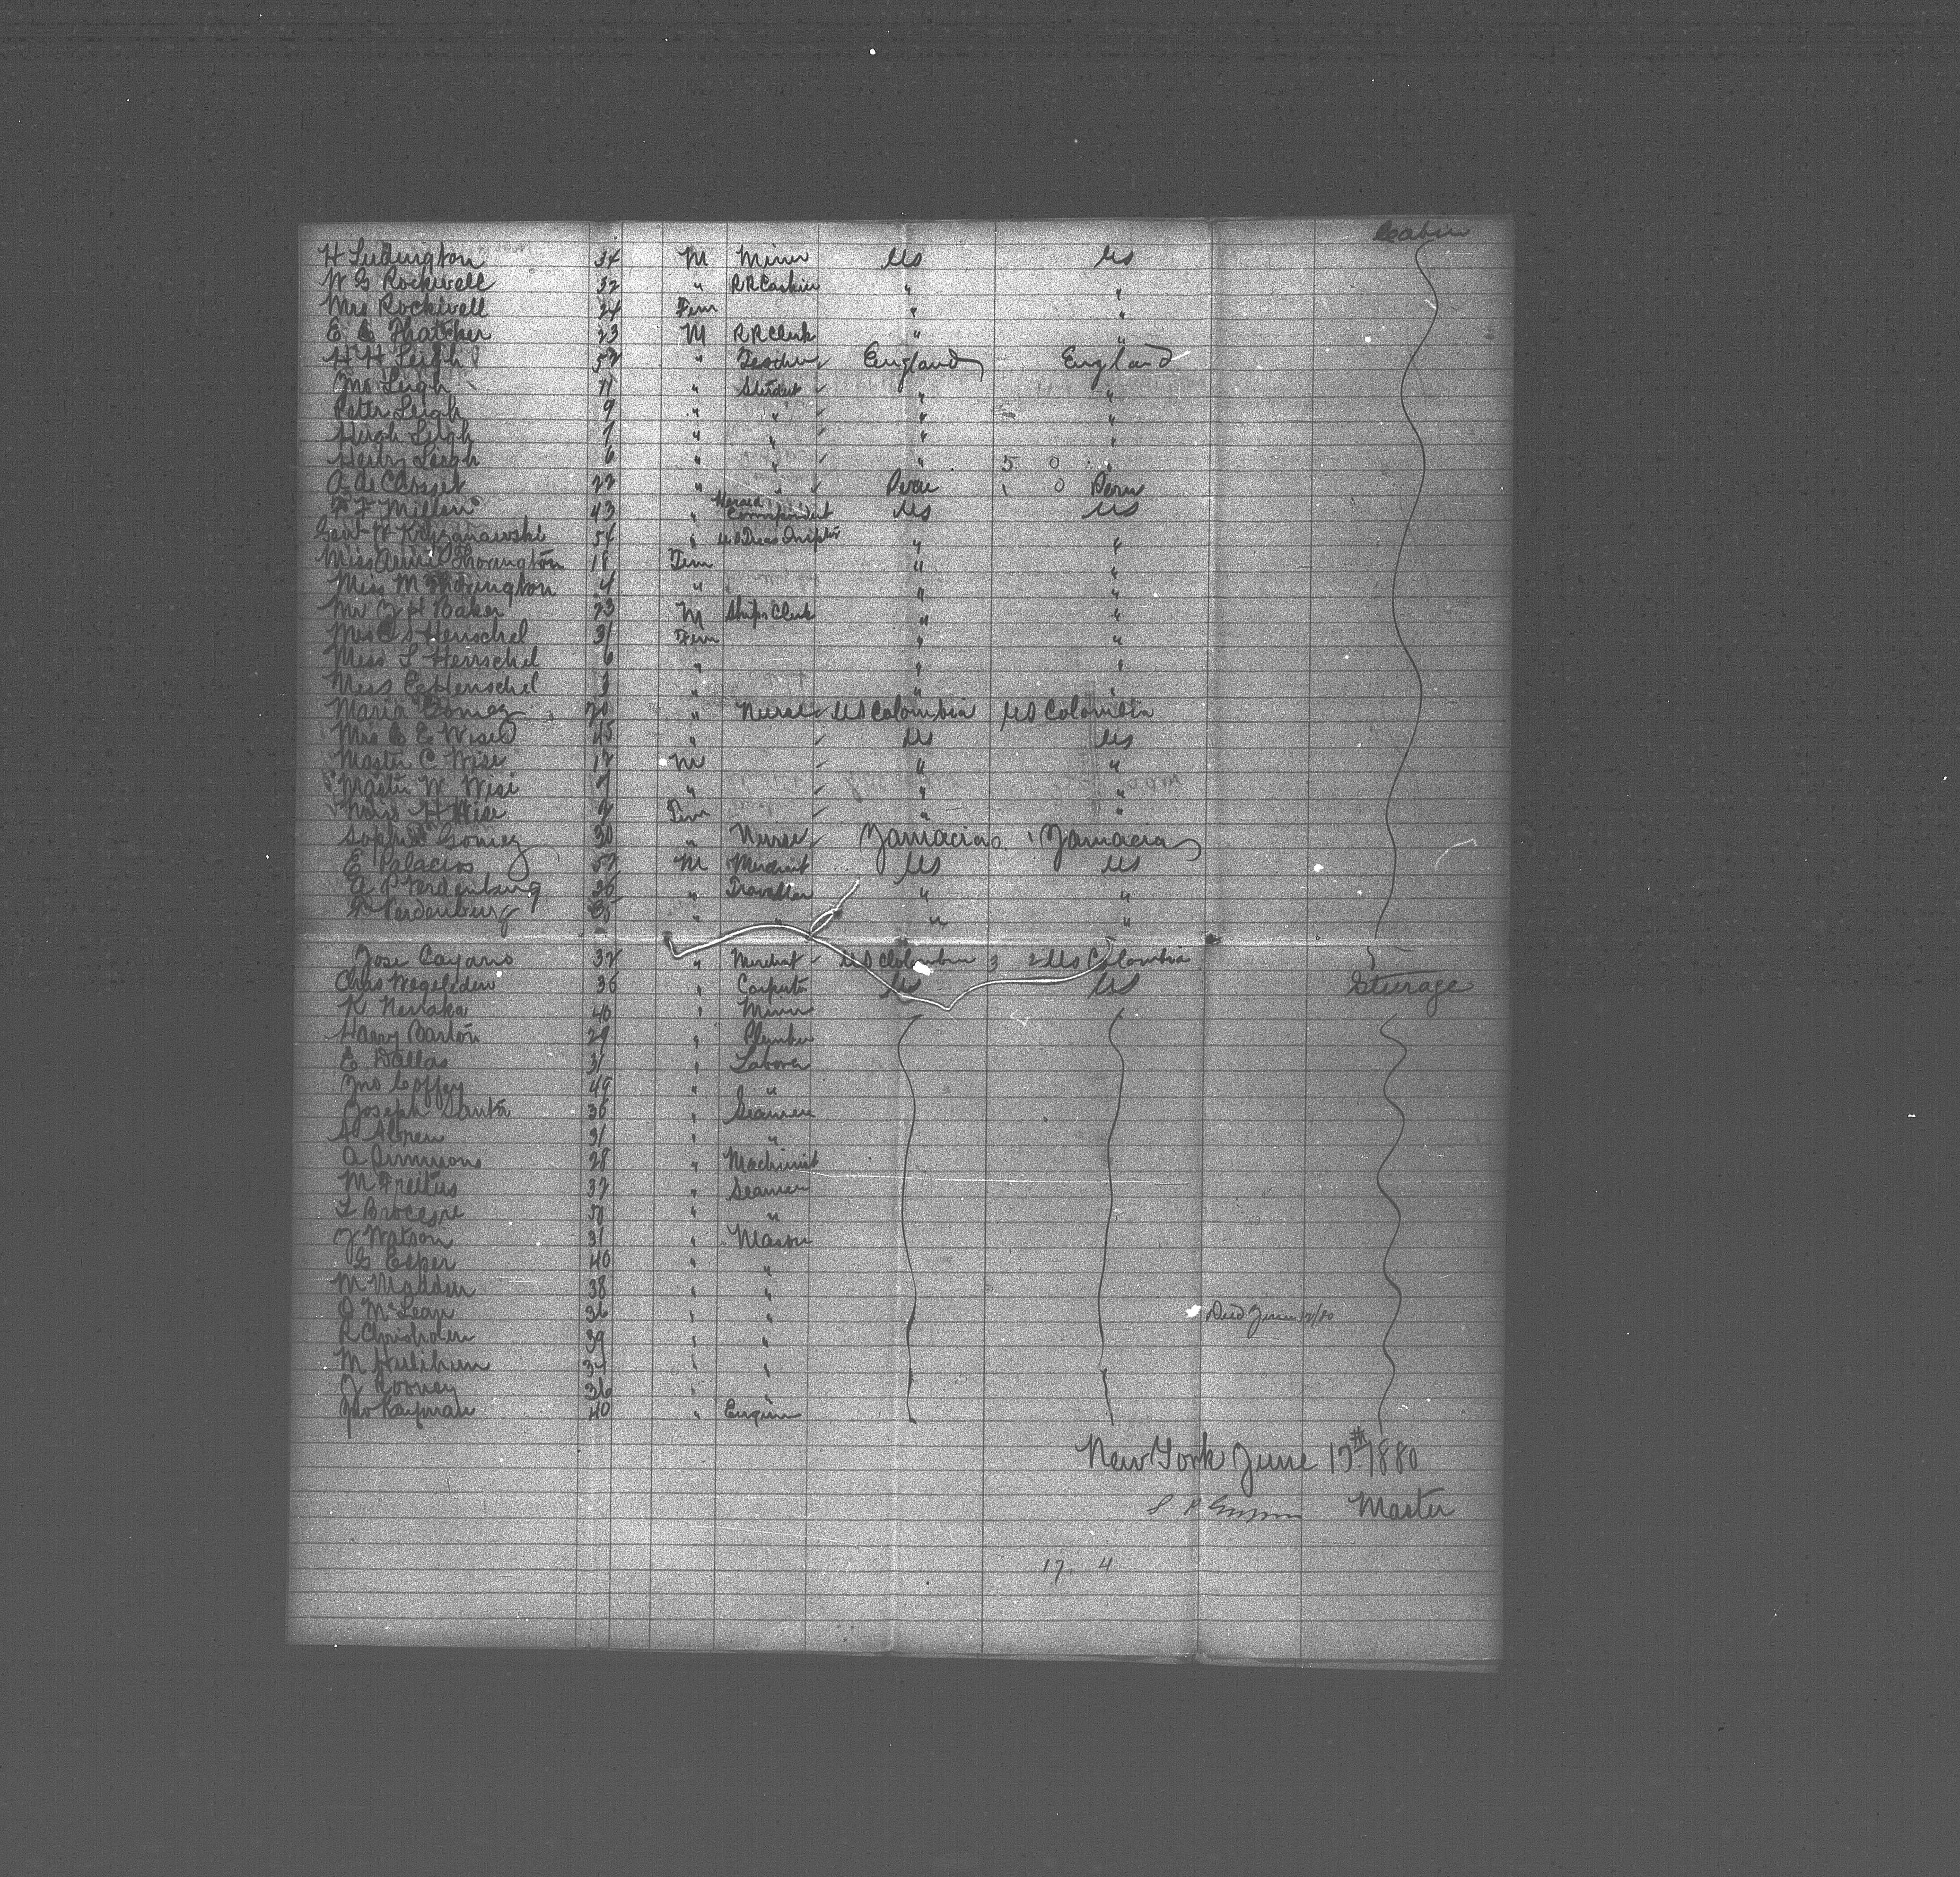 Cabin
H Ludington 34 M Miner US US
W G Rockwell 32 " RR Cashier " "
Mrs Rockwell 24 Fem " "
E C Thatcher 23 M RR Clerk " "
H H Leigh 52 " Teacher England England
Jno Leigh 11 " Student " "
Peter Leigh 9 " " " "
Hugh Leigh 7 " " " "
Henry Leigh 6 " " " 5 0 "
A de Closset 22 " " Peru 1 0 Peru
F F Millen 43 " Herald Correspondent US US
Genl W Kryzanowski 54 " " "
Miss Annie Thorington 18 Fem " "
Miss M Thorington 4 " " "
Mr J H Baker 23 M Ships Clerk " "
Mrs C S Henschel 31 Fem " "
Miss L Henschel 6 " " "
Miss C Henschel 3 " " "
Maria Gomez 20 " Nurse US Colombia US Colombia
Mrs C E Wise 45 " US US
Master C Wise 12 M " "
Master W Wise 7 " " "
Miss H Wise 2 Fem " "
Sophia Gomez 30 " Nurse Jamacia Jamacia
E Palacios 52 M Merchant US US
A P Verdenburg 36 " Traveller " "
Verdenburg " " " "
Jose Cayano 32 " Merchat US Clolombia 3 2 US Colombia
Chas Wegeleden 36 " Carpenter US US Sturage
K Nerraka 40 " Miner
Harry Barton 29 " Plumber
E Dallas 31 " Laborer
Jno Coffey 49 " "
Joseph Santa 36 " Seamen
31 " "
A Simmons 28 " Machinist
M Freitus 32 " Seaman
L " "
J Watson 31 " Mason
G Esper 40 " "
M Madden 38 " "
J McLean 36 " " Died June 12/80
R Chrisholm 39 " "
M Hulihun 34 " "
J Rooney 36 " "
Jno Kaufman 40 " Engineer
New York June 13th 1880
Master
17. 4